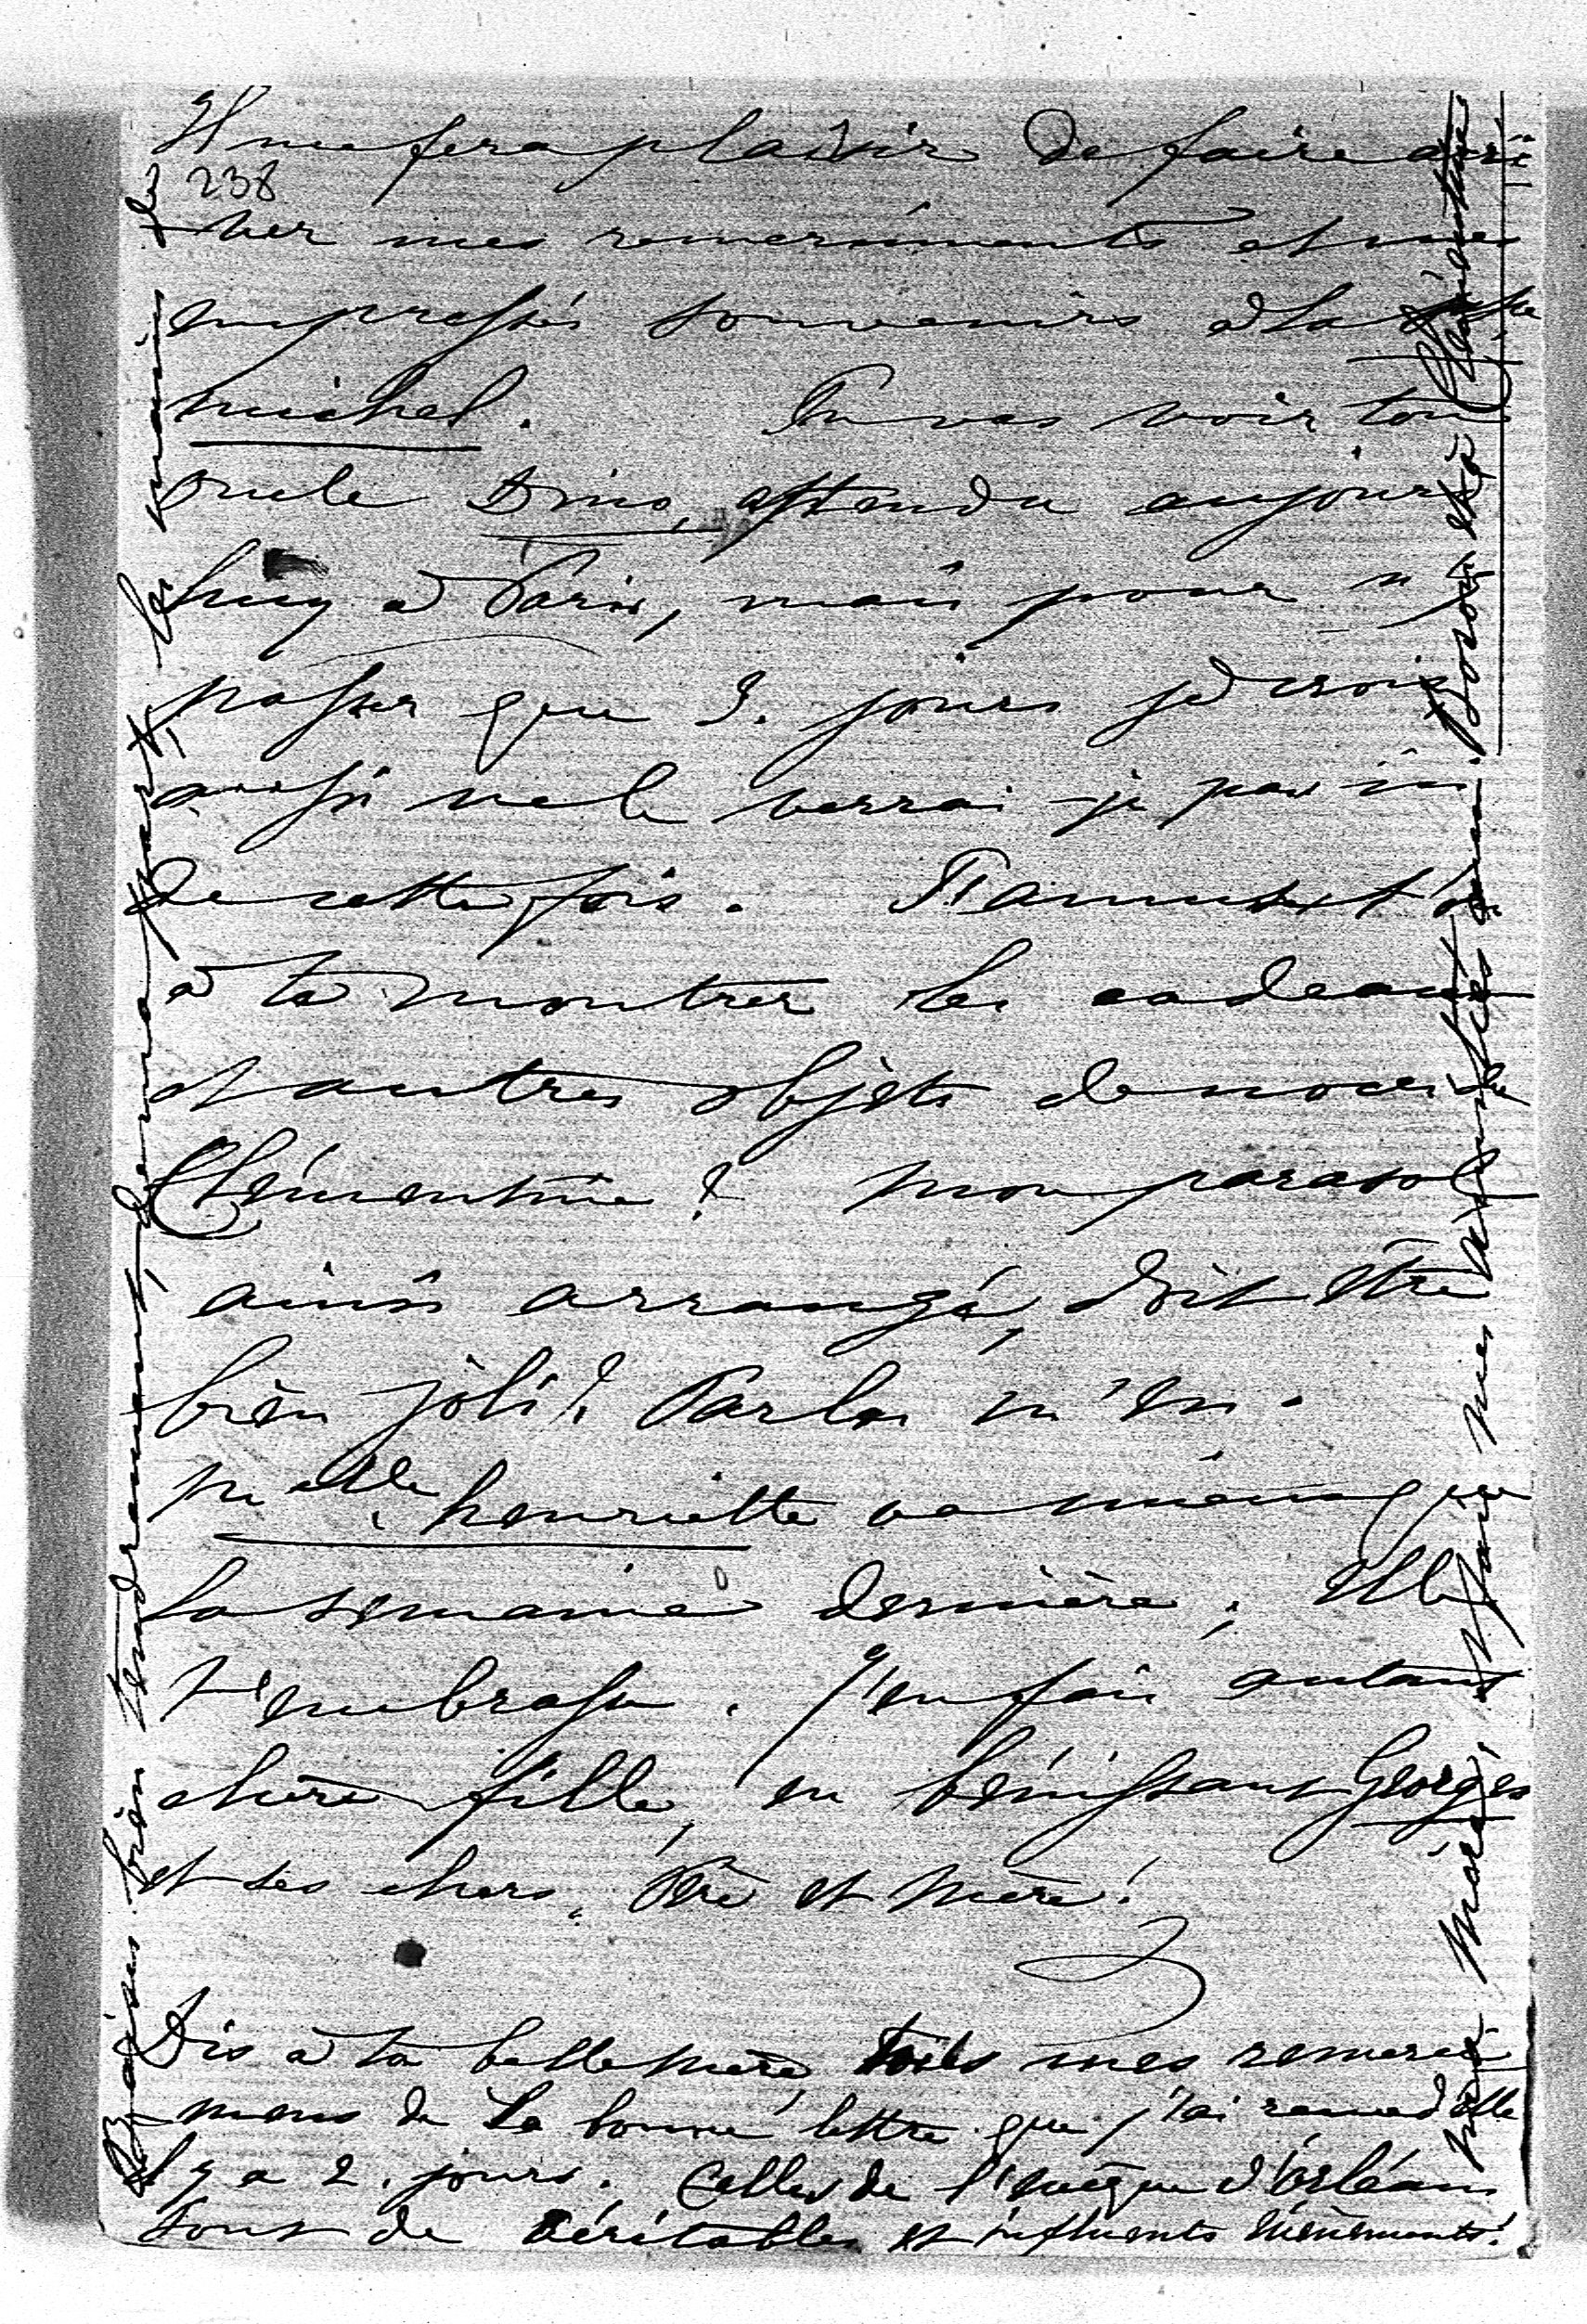 Il me fera plaisir de faire arri
238
ver mes remerciments et mes
empressés souvenirs à la
michel. Tu vas voir ton
oncle attendu aujourd
huy à Paris, mais pour n'y
passer que 3. jours je crois
aussi ne le verrai-je pas in
de cette fois. T'amuse-t-on
à te montrer les cadeaux
et autres objets de noces de
Clémentine? mon parasol
ainsi arrangé, doit être
bien joli? Parles m'en.
melle henriette va mieux que
la semaine dernière; Elle
t'embrasse. J'en fais autant
chère fille, en bénissant Georges
et ses chers Père et Mère!
Dis à ta belle mère tous mes remerci
mens de la bonne lettre que j'ai reçue d'elle
Il y a 2. jours. Celles de l'évêque d'orléans
sont de véritables et influents évènements!
Baises bien tendrement de ma part, les mains de